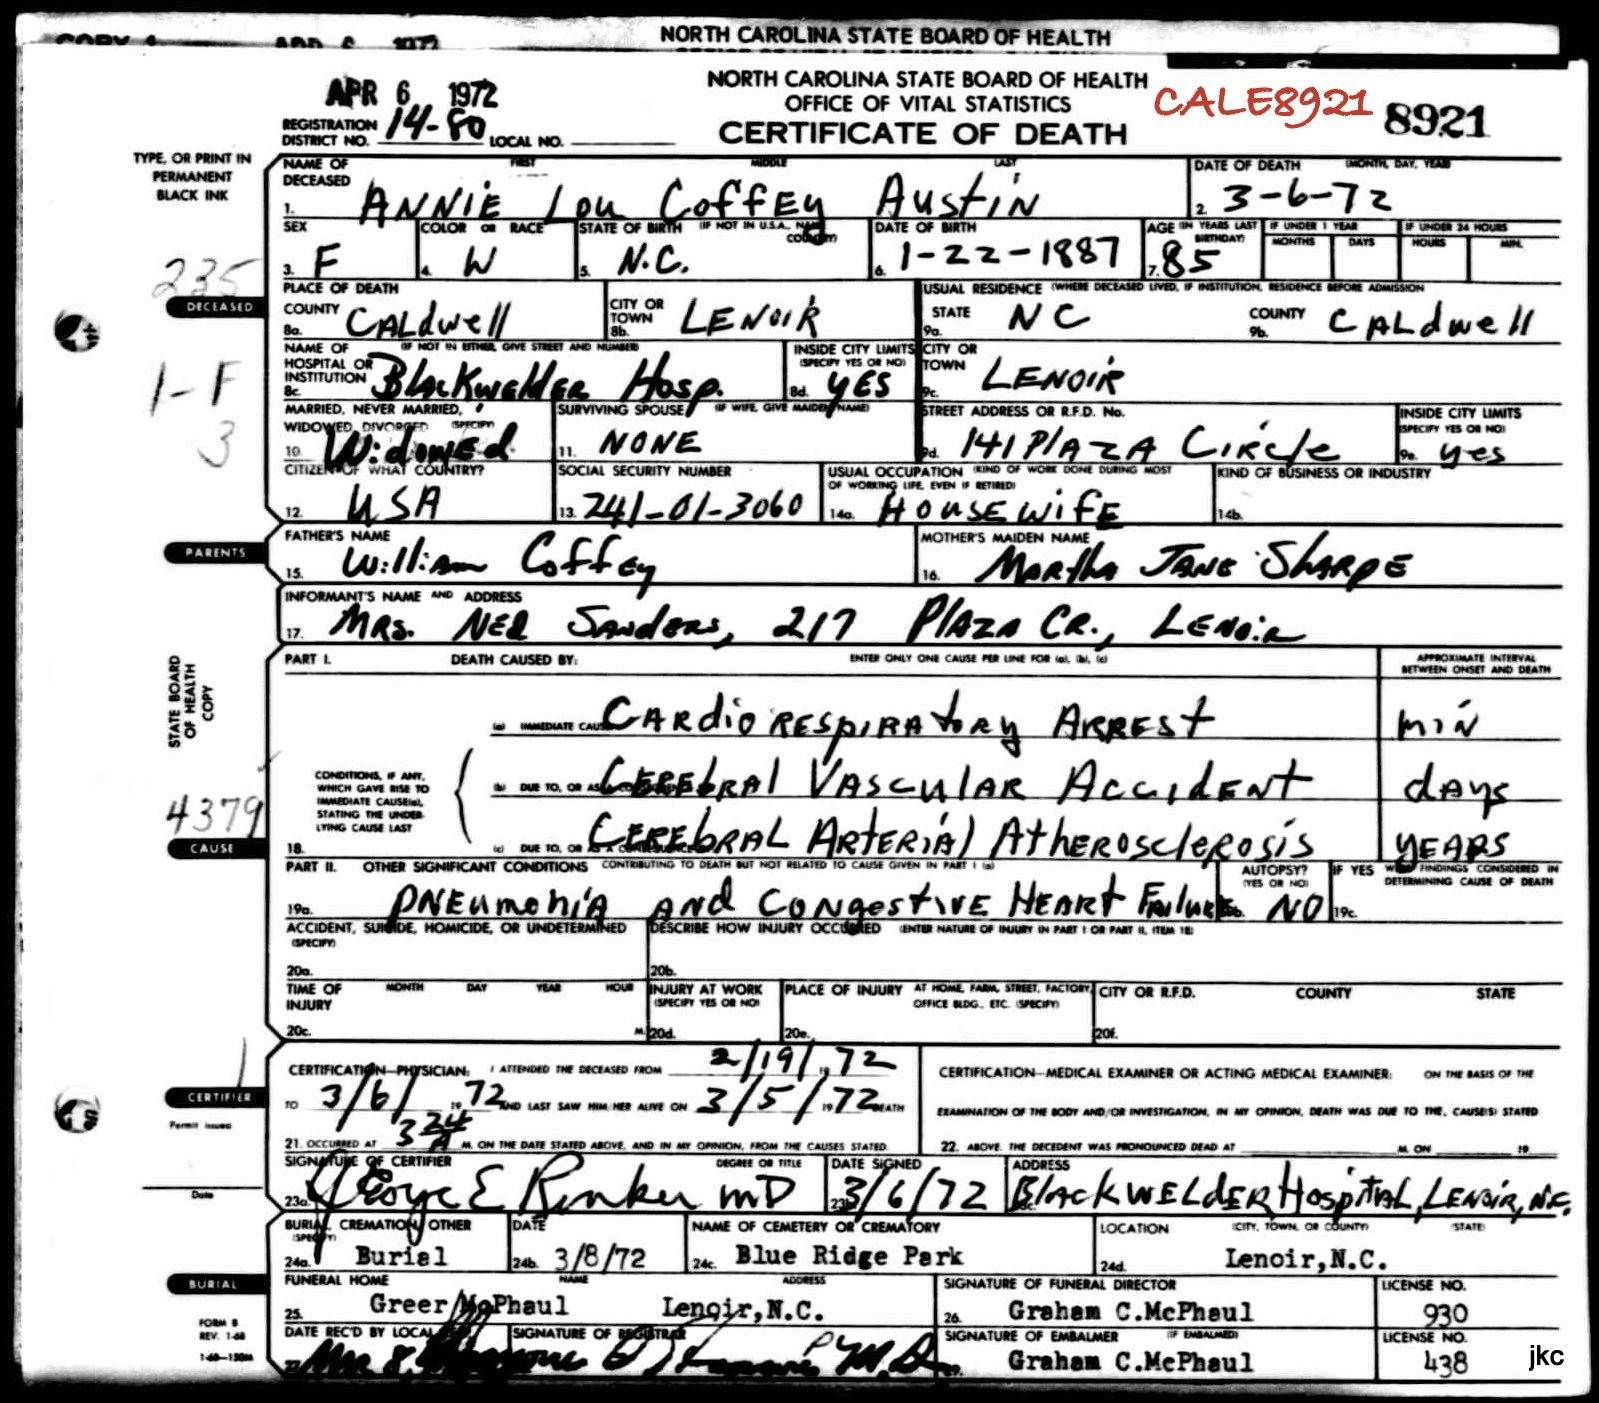 COPY 1 APR 6 1972 NORTH CAROLINA STATE BOARD OF HEALTH
APR 6 1972
NORTH CAROLINA STATE BOARD OF HEALTH
OFFICE OF VITAL STATISTICS
CERTIFICATE OF DEATH
CALE8921 8921
REGISTRATION DISTRICT NO. 14-80 LOCAL NO.
TYPE, OR PRINT IN
PERMANENT
BLACK INK
NAME OF DECEASED FIRST MIDDLE LAST
1. ANNIE Lou CoffEy AustiN
DATE OF DEATH (MONTH, DAY, YEAR)
2. 3-6-72
SEX
3. F
COLOR OR RACE
4. W
STATE OF BIRTH (IF NOT IN U.S.A., NAME COUNTRY)
5. N.C.
DATE OF BIRTH
6. 1-22-1887
AGE (IN YEARS LAST BIRTHDAY)
7. 85
IF UNDER 1 YEAR
MONTHS DAYS
IF UNDER 24 HOURS
HOURS MIN.
235
DECEASED
1-F
3
PLACE OF DEATH
COUNTY
8a. CALdwell
CITY OR TOWN
8b. LENOIR
USUAL RESIDENCE (WHERE DECEASED LIVED, IF INSTITUTION, RESIDENCE BEFORE ADMISSION
STATE
9a. NC
COUNTY
9b. CALdwell
NAME OF HOSPITAL OR INSTITUTION (IF NOT IN EITHER, GIVE STREET AND NUMBER)
8c. BlackwelderR Hosp.
INSIDE CITY LIMITS (SPECIFY YES OR NO)
8d. YES
CITY OR TOWN
9c. LENOIR
MARRIED, NEVER MARRIED, WIDOWED, DIVORCED (SPECIFY)
10. WidowEd
SURVIVING SPOUSE (IF WIFE, GIVE MAIDEN NAME)
11. NONE
STREET ADDRESS OR R.F.D. No.
9d. 141 PLAZA CiRcle
INSIDE CITY LIMITS (SPECIFY YES OR NO)
9e. yes
CITIZEN OF WHAT COUNTRY?
12. USA
SOCIAL SECURITY NUMBER
13. 241-01-3060
USUAL OCCUPATION (KIND OF WORK DONE DURING MOST OF WORKING LIFE, EVEN IF RETIRED)
14a. HousEwifE
KIND OF BUSINESS OR INDUSTRY
14b.
PARENTS
FATHER'S NAME
15. William CoffEy
MOTHER'S MAIDEN NAME
16. MARtha JANE SHARPE
INFORMANT'S NAME AND ADDRESS
17. MRs. NEd SandERs, 217 PlAZA CR., LENoiR
STATE BOARD OF HEALTH COPY
PART I. DEATH CAUSED BY: ENTER ONLY ONE CAUSE PER LINE FOR (a), (b), (c)
APPROXIMATE INTERVAL BETWEEN ONSET AND DEATH
(a) IMMEDIATE CAUSE CARdioRESpiRAtory ARREST min
CONDITIONS, IF ANY,
WHICH GAVE RISE TO
IMMEDIATE CAUSE(a),
STATING THE UNDER-
LYING CAUSE LAST
(b) DUE TO, OR AS A CONSEQUENCE OF CEREbRAl VAsculAR AccidENt dAys
4379
CAUSE
18.
(c) DUE TO, OR AS A CONSEQUENCE OF CEREbRAL ARTERiAl AtheRosclEROsis YEARS
PART II. OTHER SIGNIFICANT CONDITIONS CONTRIBUTING TO DEATH BUT NOT RELATED TO CAUSE GIVEN IN PART I (a)
19a. PNEumoniA AND CONgestivE HEARt FailuRE
AUTOPSY? (YES OR NO)
19b. NO
IF YES WERE FINDINGS CONSIDERED IN DETERMINING CAUSE OF DEATH
19c.
ACCIDENT, SUICIDE, HOMICIDE, OR UNDETERMINED (SPECIFY)
20a.
DESCRIBE HOW INJURY OCCURRED (ENTER NATURE OF INJURY IN PART I OR PART II, ITEM 18)
20b.
TIME OF INJURY MONTH DAY YEAR HOUR
20c. M.
INJURY AT WORK (SPECIFY YES OR NO)
20d.
PLACE OF INJURY AT HOME, FARM, STREET, FACTORY, OFFICE BLDG., ETC. (SPECIFY)
20e.
CITY OR R.F.D. COUNTY STATE
20f.
1
CERTIFIER
Permit issued
Date
CERTIFICATION—PHYSICIAN: I ATTENDED THE DECEASED FROM 2/19/, 72
TO 3/6/ 1972 AND LAST SAW HIM/HER ALIVE ON 3/5/ 1972 DEATH
21. OCCURRED AT 3 24 A M. ON THE DATE STATED ABOVE, AND IN MY OPINION, FROM THE CAUSES STATED.
CERTIFICATION—MEDICAL EXAMINER OR ACTING MEDICAL EXAMINER: ON THE BASIS OF THE
EXAMINATION OF THE BODY AND/OR INVESTIGATION, IN MY OPINION, DEATH WAS DUE TO THE, CAUSE(S) STATED
22. ABOVE. THE DECEDENT WAS PRONOUNCED DEAD AT M. ON 19
SIGNATURE OF CERTIFIER DEGREE OR TITLE
23a. George E Rinker MD
DATE SIGNED
23b. 3/6/72
ADDRESS
23c. BLACKWELdER HospitAL, LENoiR, N.C.
BURIAL, CREMATION, OTHER (SPECIFY)
24a. Burial
DATE
24b. 3/8/72
NAME OF CEMETERY OR CREMATORY
24c. Blue Ridge Park
LOCATION (CITY, TOWN, OR COUNTY) (STATE)
24d. Lenoir,N.C.
BURIAL
FORM 8
REV. 1-68
1-68—150M
FUNERAL HOME NAME ADDRESS
25. Greer McPhaul Lenoir,N.C.
SIGNATURE OF FUNERAL DIRECTOR
26. Graham C.McPhaul
LICENSE NO.
930
DATE REC'D BY LOCAL REG.
27.
SIGNATURE OF REGISTRAR
M.D.
SIGNATURE OF EMBALMER (IF EMBALMED)
Graham C.McPhaul
LICENSE NO.
438
jkc